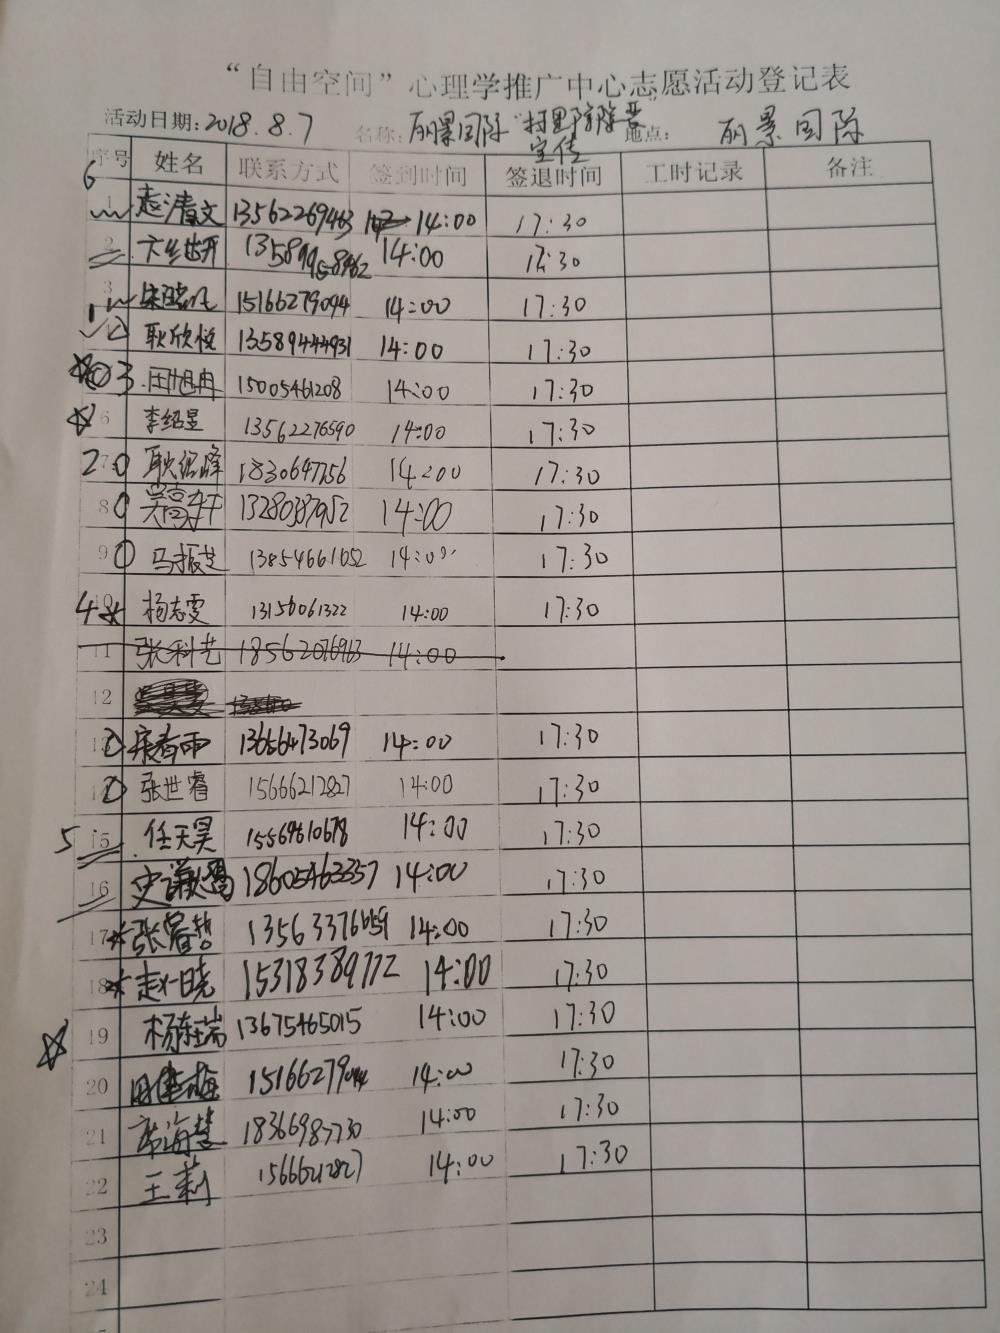 “自由空间”心理学推广中心志愿活动登记表
活动日期：2018.8.7 名称：丽景国际 宣传 地点：丽景国际
序号 姓名 联系方式 签到时间 签退时间 工时记录 备注
6
1 赵清文 13562269463 14:00 17:30
2 14:00 17:30
3 15166279094 14:00 17:30
1 2 耿欣悦 13589444931 14:00 17:30
3 田旭冉 15005461208 14:00 17:30
6 李绍昱 13562276590 14:00 17:30
2 7 0 耿铭峰 1830647256 14:00 17:30
8 0 13280387952 14:00 17:30
9 0 马振芝 13854661052 14:00 17:30
4 10 杨志雯 13156061322 14:00 17:30
11 张科艺 18562076963 14:00
12
13 宋春雨 13656473069 14:00 17:30
14 张世睿 15666212827 14:00 17:30
5 15 任天昊 15569610678 14:00 17:30
16 18605463357 14:00 17:30
17 张睿哲 13563376659 14:00 17:30
18 赵一晓 15318389772 14:00 17:30
19 杨东瑞 13675465015 14:00 17:30
20 15166279094 14:00 17:30
21 海慧 18366987730 14:00 17:30
22 王莉 15666212827 14:00 17:30
23
24